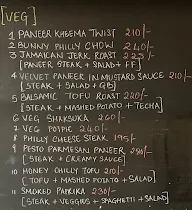 [VEG]
1 PANEER KHEEMA TWIST 210/-
2 BUNNY PHILLY CHOW 240/-
3 JAMAICAN JERK ROAST 225/-
[PANEER STEAK + SALAD + FF]
4 VELVET PANEER IN MUSTARD SAUCE 210/-
[STEAK + SALAD + GB]
5 BALSAMIC TOFU ROAST 220/-
[STEAK + MASHED POTATO + TECHA]
6 VEG SHAKSUKA 260/-
7 VEG POTPIE 240/-
8 PHILLY CHEESE STEAK 195/-
9 PESTO PARMESAN PANEER 290/-
[STEAK + CREAMY SAUCE]
10 MONEY CHILLY TOFU 210/-
[TOFU + MASHED POTATO + SALAD]
11 SMOKED PAPRIKA 230/-
[STEAK + VEGGIES + SPAGHETTI + SALAD]